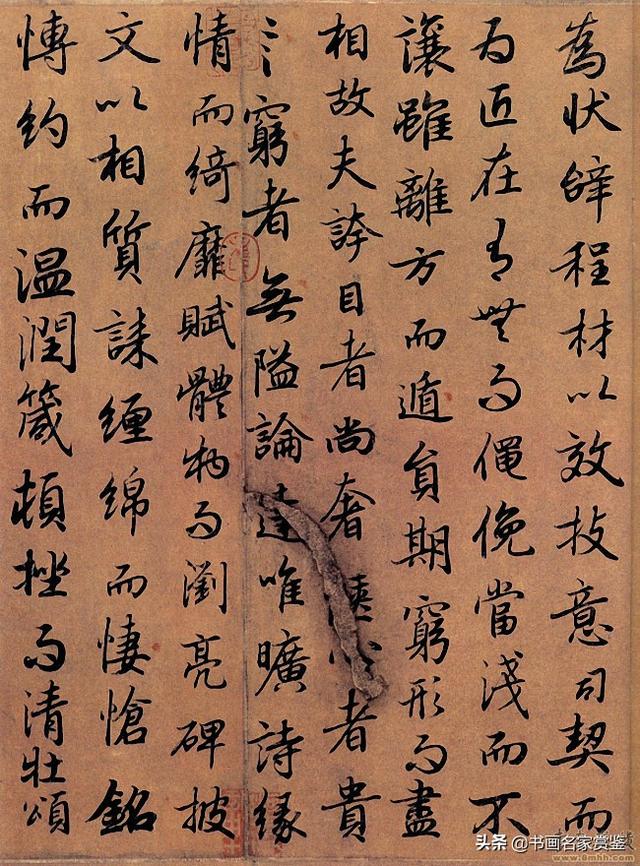 為狀辝程材以效技意司契而
為匠在有無而僶俛當淺而不
讓雖離方而遁員期窮形而盡
相故夫誇目者尚奢者貴
窮者無隘論達唯曠詩緣
情而綺靡賦體物而瀏亮碑披
文以相質誄纏綿而悽愴銘
博約而温潤箴頓挫而清壯頌
头条 @书画名家赏鉴
www.8mhh.com